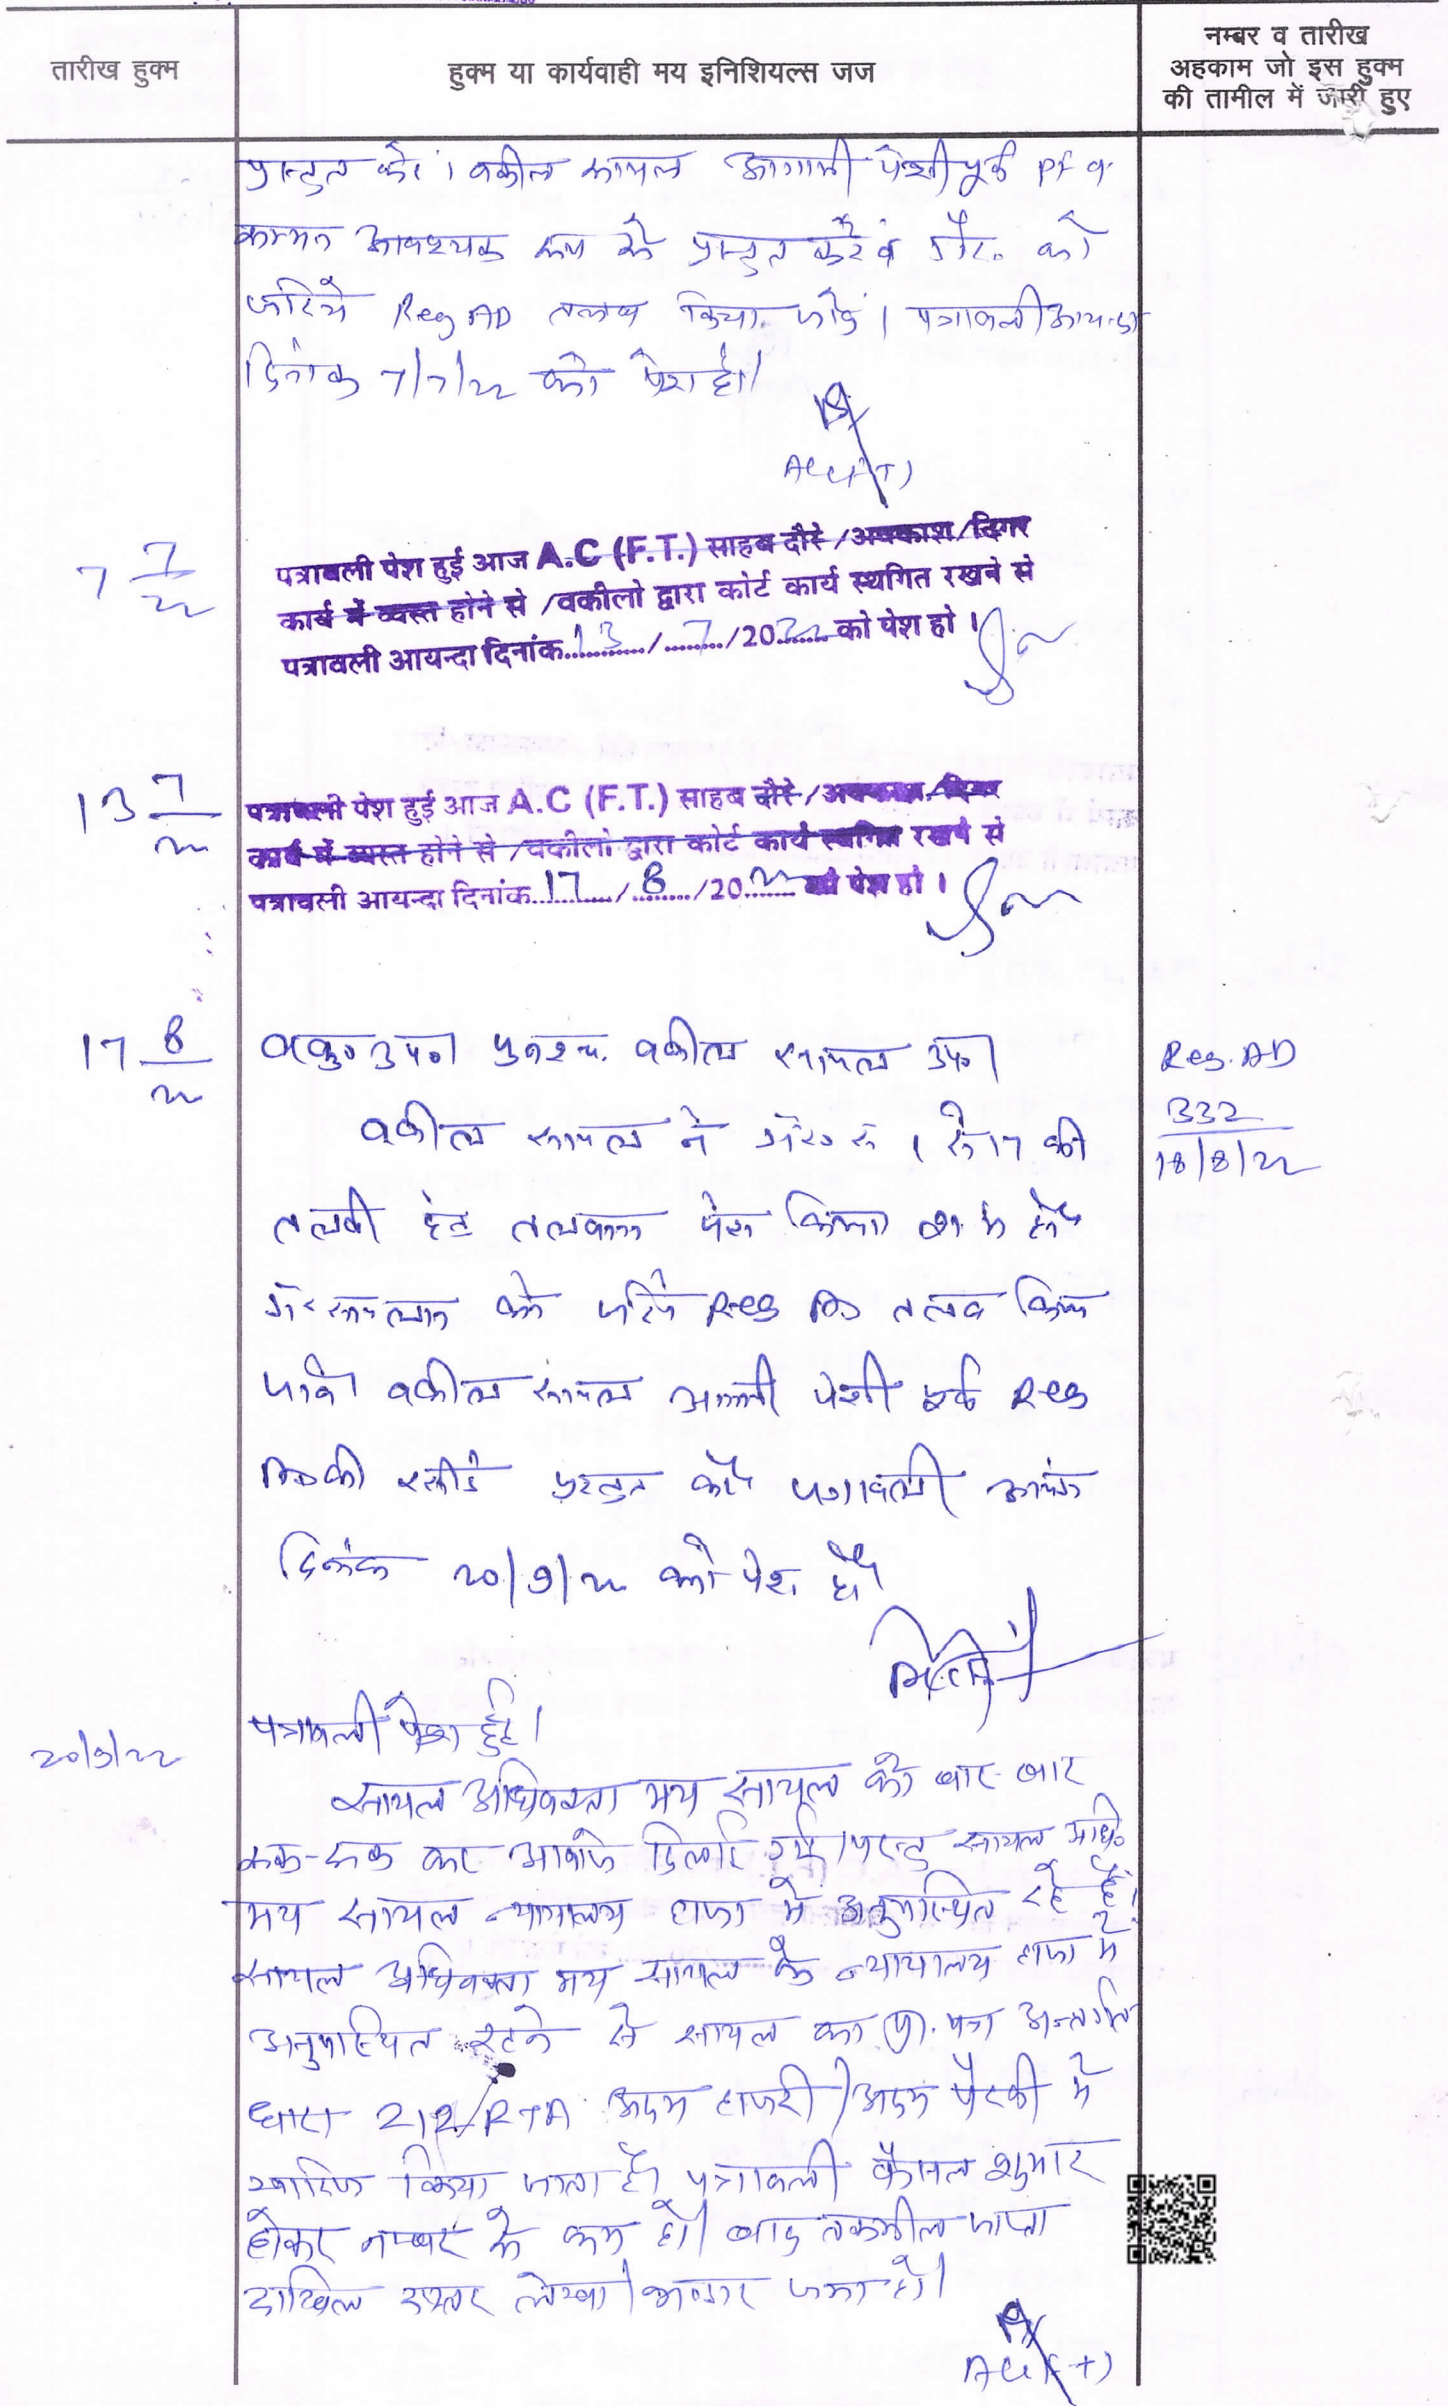 तारीख हुक्म
हुक्म या कार्यवाही मय इनिशियल्स जज
नम्बर व तारीख
अहकाम जो इस हुक्म
की तामील में जारी हुए
प्रस्तुत करें। वकील सायल आगामी पेशी पूर्व PF व
सम्मन आवश्यक रूप से प्रस्तुत करें व गैर. को
जरिये Reg AD तलब किया जावे। पत्रावली आयन्दा
दिनांक 7/7/22 को पेश हो।
7 7/22
पत्रावली पेश हुई आज A.C (F.T.) साहब दौरे /अवकाश/दिगर
कार्य में व्यस्त होने से /वकीलो द्वारा कोर्ट कार्य स्थगित रखने से
पत्रावली आयन्दा दिनांक 13 / 7 /2022 को पेश हो ।
13 7/22
पत्रावली पेश हुई आज A.C (F.T.) साहब दौरे /अवकाश/दिगर
कार्य में व्यस्त होने से /वकीलो द्वारा कोर्ट कार्य स्थगित रखने से
पत्रावली आयन्दा दिनांक 17 / 8 /2022 को पेश हो ।
17 8/22
वकील सायल उप।
Reg. AD
332
18/8/22
वकील सायल ने 1 से 17 की
तलबी हेतु तलबाना पेश किया
को जरिये Reg AD तलब किया
जावे। वकील सायल अगली पेशी पूर्व Reg
AD की रसीद प्रस्तुत करें पत्रावली आयंदा
दिनांक 20/9/22 को पेश हो
20/9/22
पत्रावली पेश हुई।
सायल अधिवक्ता मय सायल को बार-बार
रूक-रूक कर आवाज दिलाई गई। परन्तु सायल अधि.
मय सायल न्यायालय हाजा में अनुपस्थित रहे हैं।
सायल अधिवक्ता मय सायल के न्यायालय हाजा में
अनुपस्थित रहने से सायल का प्रा. पत्र अन्तर्गत
धारा 212/RTA अदम हाजरी/अदम पैरवी में
खारिज किया जाता है। पत्रावली फैसल शुमार
होकर नम्बर से कम हो। बाद तकमील जाप्ता
दाखिल दफ्तर लेखा जमा हो।